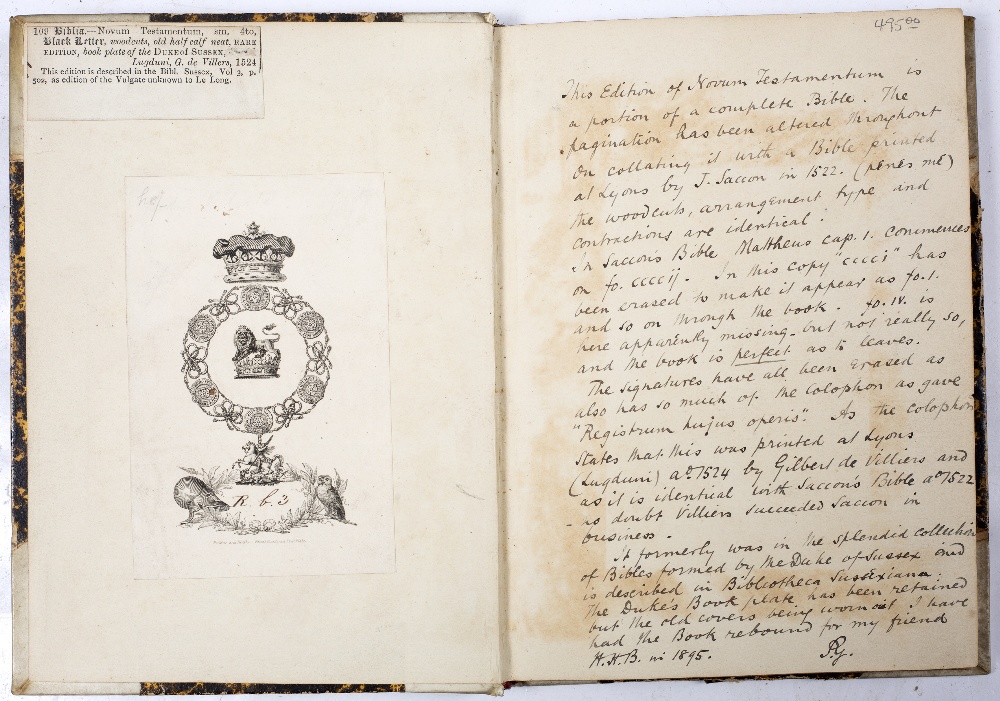 109 Biblia.—Novum Testamentum, sm. 4to,
Black Letter, woodcuts, old half calf neat, RARE
EDITION, book plate of the DUKE of SUSSEX,
Lugduni, G. de Villers, 1524
This edition is described in the Bibl. Sussex, Vol 2, p.
502, as edition of the Vulgate unknown to Le Long.
R. 6. 3
495 00
This Edition of Novum Testamentum is
a portion of a complete Bible. The
pagination has been altered throughout
On collating it with a Bible printed
at Lyons by J. Saccon in 1522. (penes me)
the woodcuts, arrangement type and
contractions are identical.
In Saccons Bible Mattheus cap. 1. commences
on fo. ccccij. In this copy "cccci" has
been erased to make it appear as fo. 1.
and so on through the book. fo. IV. is
here apparently missing - but not really so,
and the book is perfect as to leaves.
The signatures have all been erased as
also has so much of the colophon as gave
"Registrum hujus operis". As the colophon
states that this was printed at Lyons
(Lugduni) aº 1524 by Gilbert de Villiers and
as it is identical with Saccon's Bible aº 1522
- no doubt Villiers succeeded Saccon in
business.
It formerly was in the splendid collection
of Bibles formed by the Duke of Sussex and
is described in Bibliotheca Sussexiana.
The Duke's Book plate has been retained
but the old covers being wornout I have
had the Book rebound for my friend
H.H.B. in 1895.